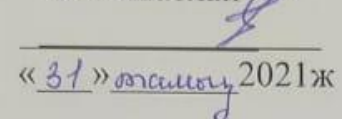 « 31 » тамыз 2021ж